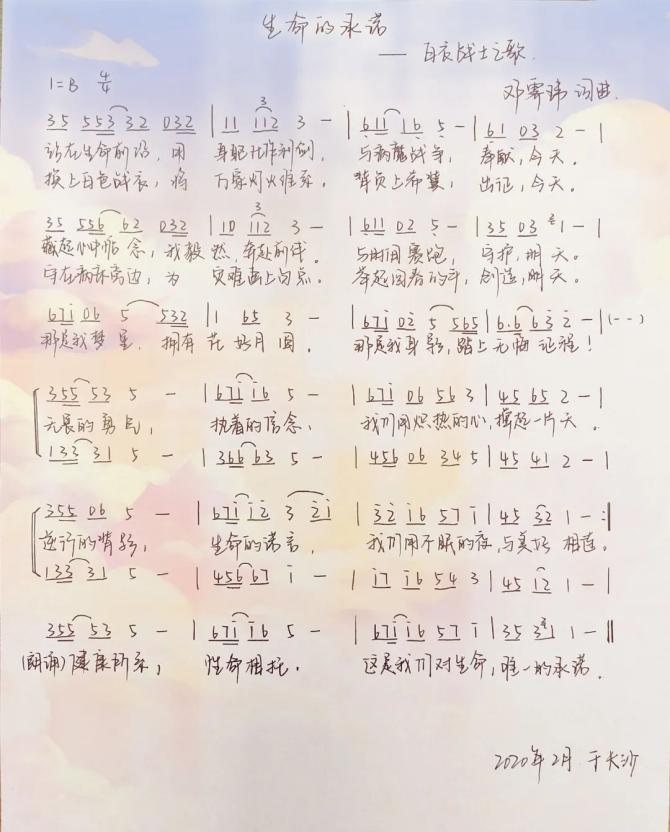 生命的承诺
—— 白衣战士之歌.
1=B 4/4
邓霁玮 词曲.
35 553 32 032 | 11 112 3 - | 611 16 5 - | 61 03 2 - |
站在生命前沿, 用 身躯化作利剑, 与病魔战争, 奉献,今天。
换上白色战衣, 将 万家灯火维系. 背负上希冀, 出征,今天。
35 556 62 032 | 10 112 3 - | 611 02 5 - | 35 03 1 - |
藏起心中惦念,我毅然,奔赴前线. 与时间赛跑, 守护,明天。
守在病床旁边,为 灾难画上句点. 举起团春的手,创造,明天。
67i 06 5 532 | 1 65 3 - | 67i 02 5 565 | 6.6 63 2 - | (--)
那是我梦里 拥有花好月圆. 那是我身影,踏上无悔征程!
355 53 5 - | 67i i6 5 - | 67i 06 56 3 | 45 65 2 - |
无畏的勇气, 执着的信念, 我们用炽热的心,撑起一片天.
133 31 5 - | 366 63 5 - | 456 06 34 5 | 45 41 2 - |
355 06 5 - | 67i i2 3 2i | 32 i6 57 i | 45 32 1 - :|
逆行的背影, 生命的诺言, 我们用不眠的夜,与美好 相连。
133 31 5 - | 456 67 i - | i7 i6 54 3 | 45 i2 1 - |
355 53 5 - | 67i i6 5 - | 67i i6 57 i | 35 3 1 - ||
(朗诵)健康所系, 性命相托. 这是我们对生命,唯一的承诺.
2020年2月 于长沙